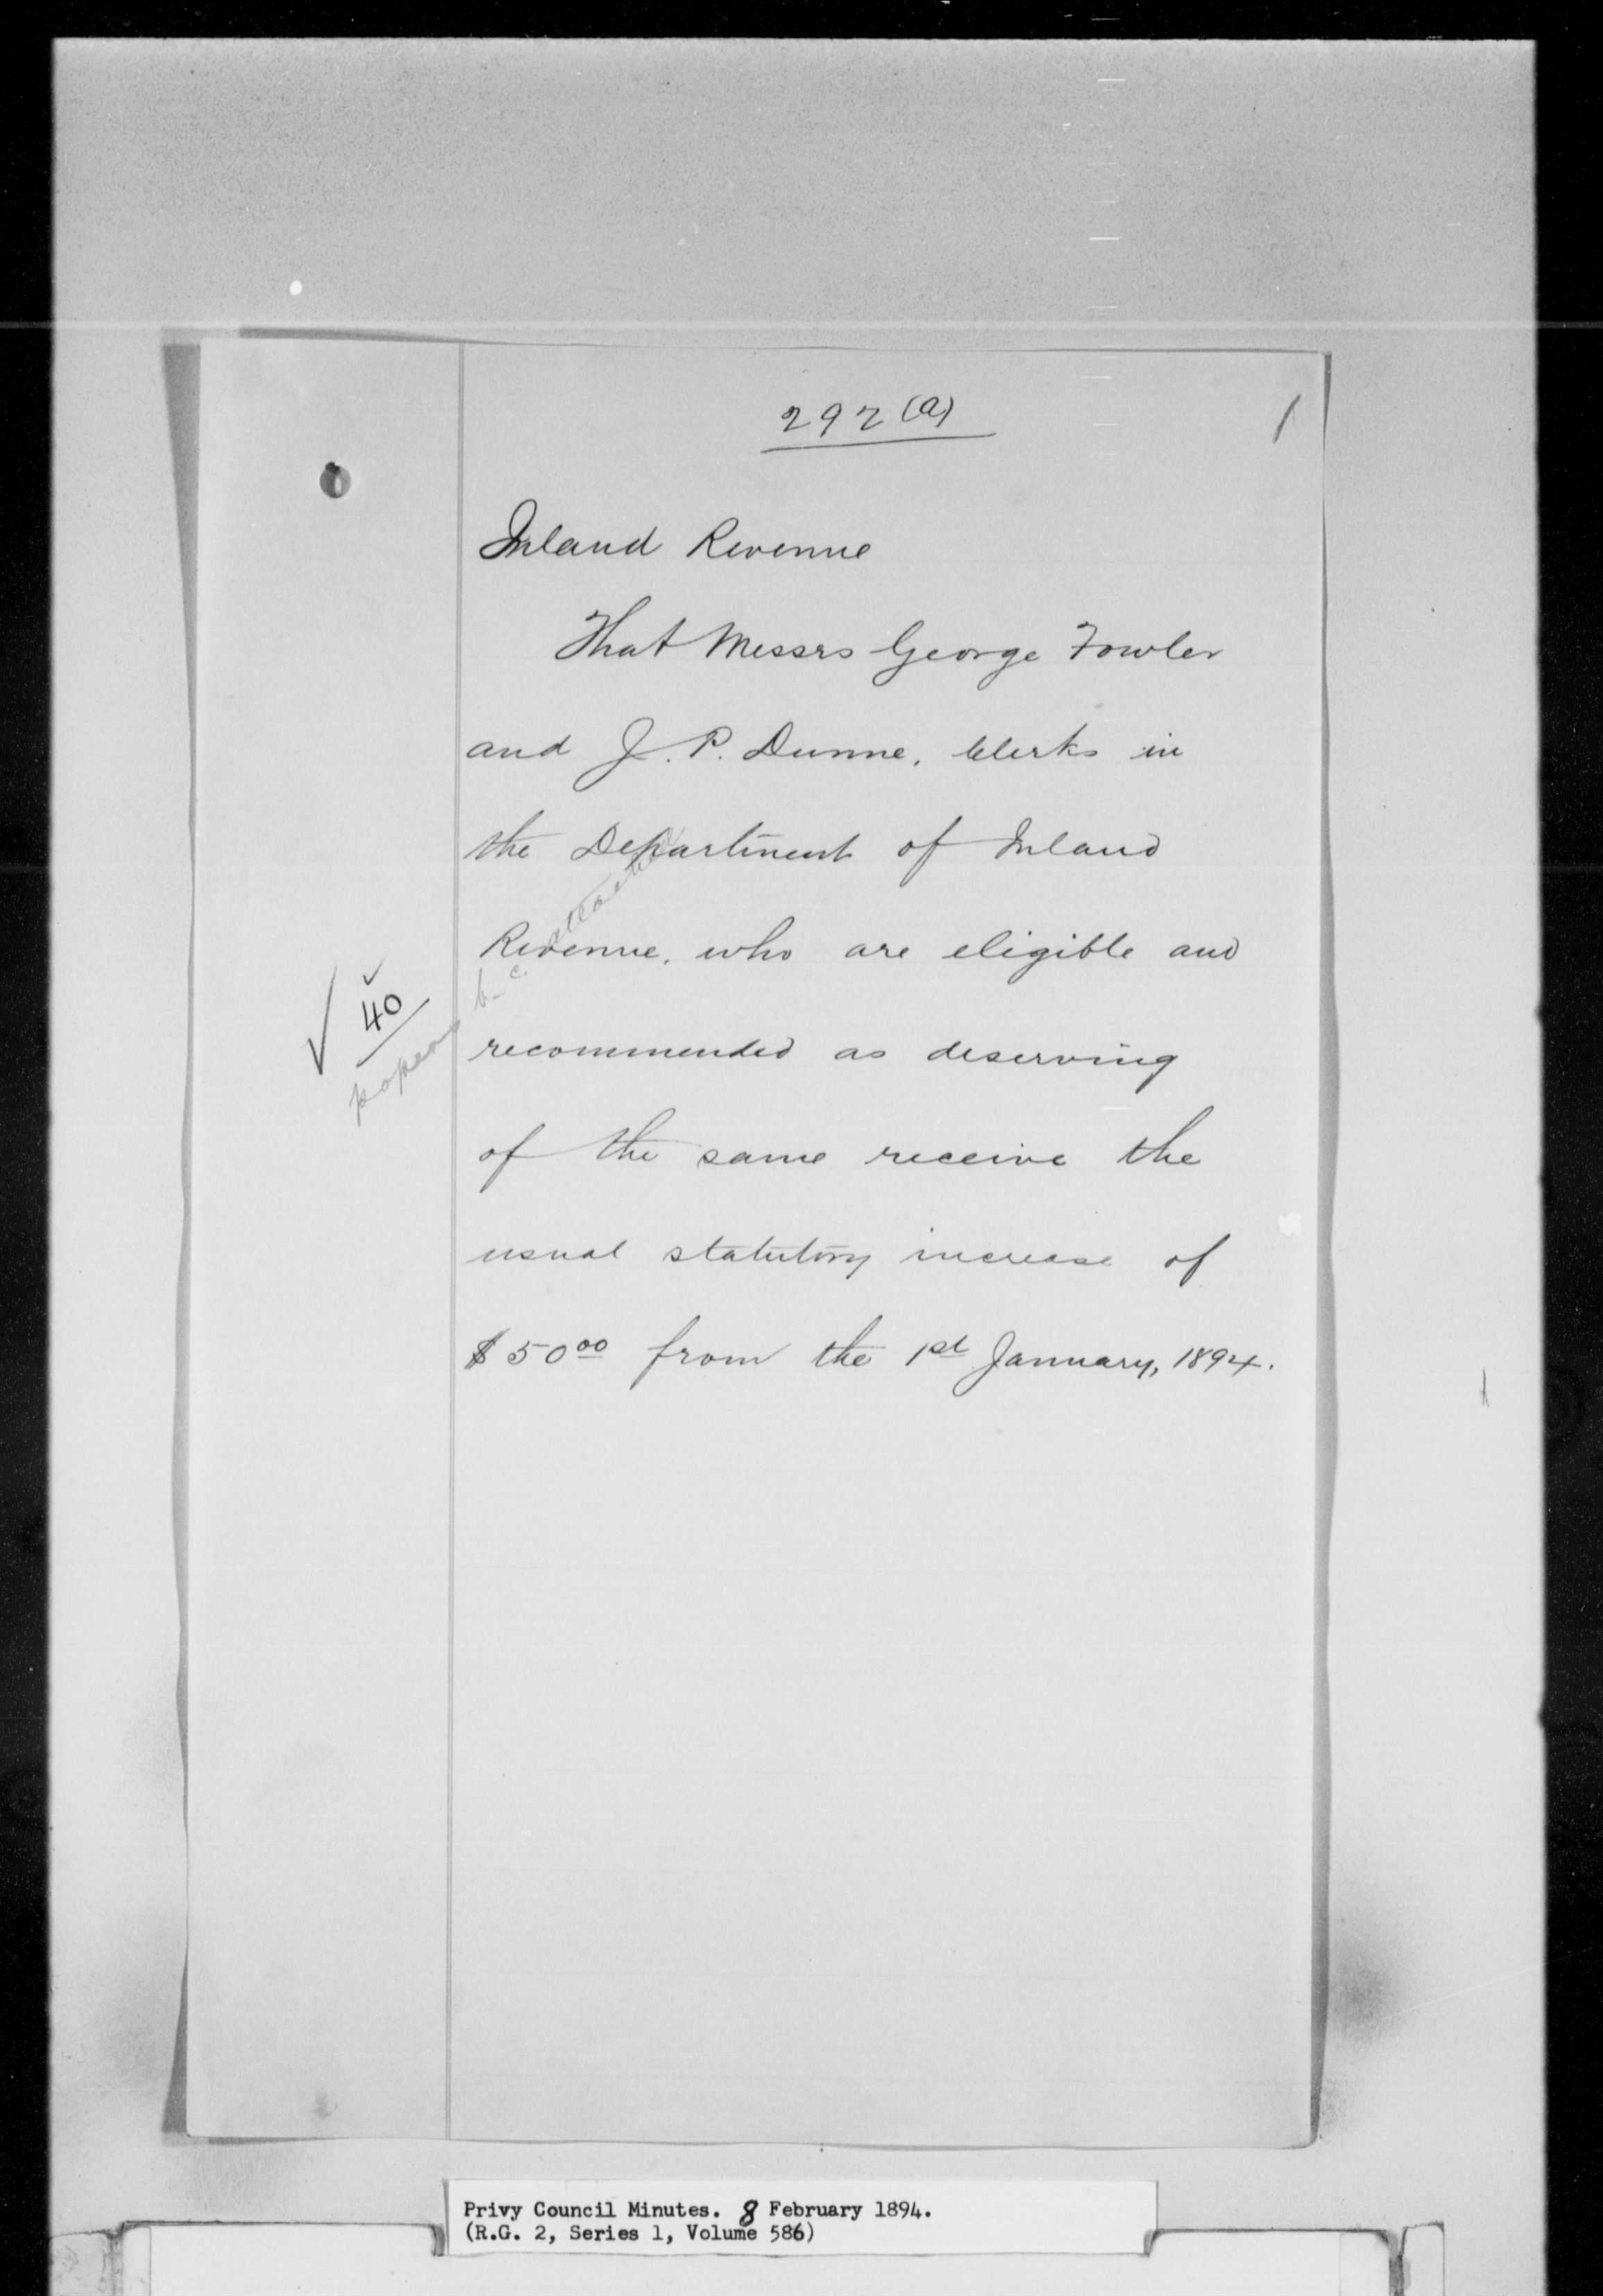 292 (a)
1
Inland Revenue
That Messrs George Fowler
and J. P. Dunne, Clerks in
the Department of Inland
Revenue, who are eligible and
recommended as deserving
of the same receive the
usual statutory increase of
$50 00 from the 1st January, 1894.
40
papers b. c. attached
Privy Council Minutes. 8 February 1894.
(R.G. 2, Series 1, Volume 586)